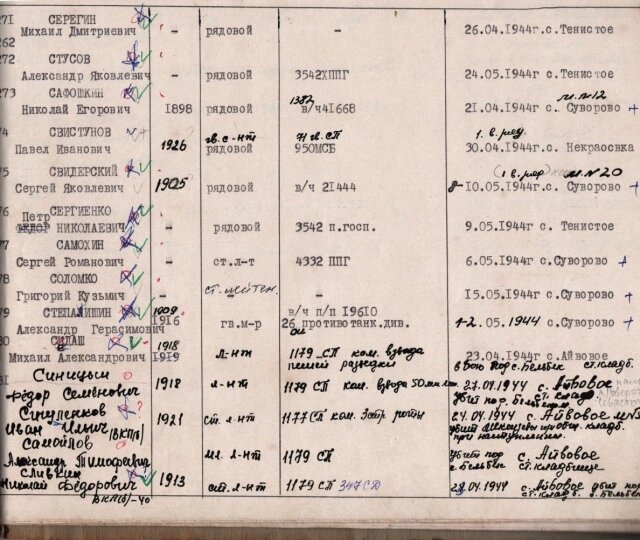 271 СЕРЕГИН
Михаил Дмитриевич - рядовой - 26.04.1944г.с.Тенистое
262
272 СТУСОВ
Александр Яковлевич - рядовой 3542ХППГ 24.05.1944г с.Тенистое
273 САФОШКИН 1382 м.п12
Николай Егорович 1898 рядовой в/ч41668 21.04.1944г с. Суворово +
74 СВИСТУНОВ гв.с-нт 71 гв.СП 1. в. ряд.
Павел Иванович 1926 рядовой 950МСБ 30.04.1944г.с. Некрасовка
75 СВИДЕРСКИЙ (1 в.ряд) м.N20
Сергей Яковлевич 1905 рядовой в/ч 21444 8-10.05.1944г с. Суворово +
76 СЕРГИЕНКО
Петр
ФЕДОР НИКОЛАЕВИЧ - рядовой 3542 п.госп. 9.05.1944г с. Тенистое
77 САМОХИН
Сергей Романович - ст.л-т 4332 ППГ 6.05.1944г с.Суворово +
78 СОЛОМКО
Григорий Кузьмич - ст. лейтен. - 15.05.1944г с.Суворово +
79 СТЕПАЛИШИН 1909 в/ч п/п 19610
Александр Герасимович 1916 гв.м-р 26 противотанк.див. 1-2.05.1944 с.Суворово +
80 СЕДАШ 1918 л-нт 1179 СП ком. взвода
Михаил Александрович 1919 пешей разведки 23.04.1944г с.Айвовое
в бою под с.Бельбек ст.кладб.
81 Синицын
Фёдор Семёнович 1918 л-нт 1179 СП ком. взвода 50мм 27.04.1944 с. Айвовое
ст. кладб
Синуленков
Иван Ильич ВКП/б/ 1921 ст. л-нт 1177 СП ком. роты 24.04.1944 с. Айвовое
Самойлов
Александр Тимофеевич мл. л-нт 1179 СП убит под с. Айвовое
с Бельбек ст.кладбище
Сливкин
Николай Федорович 1913 ст.л-нт 1179 СП 347 СД 23.04.1944 с.Айвовое убит под
ВКП/б/-40 ст.кладб. с. Бельбек